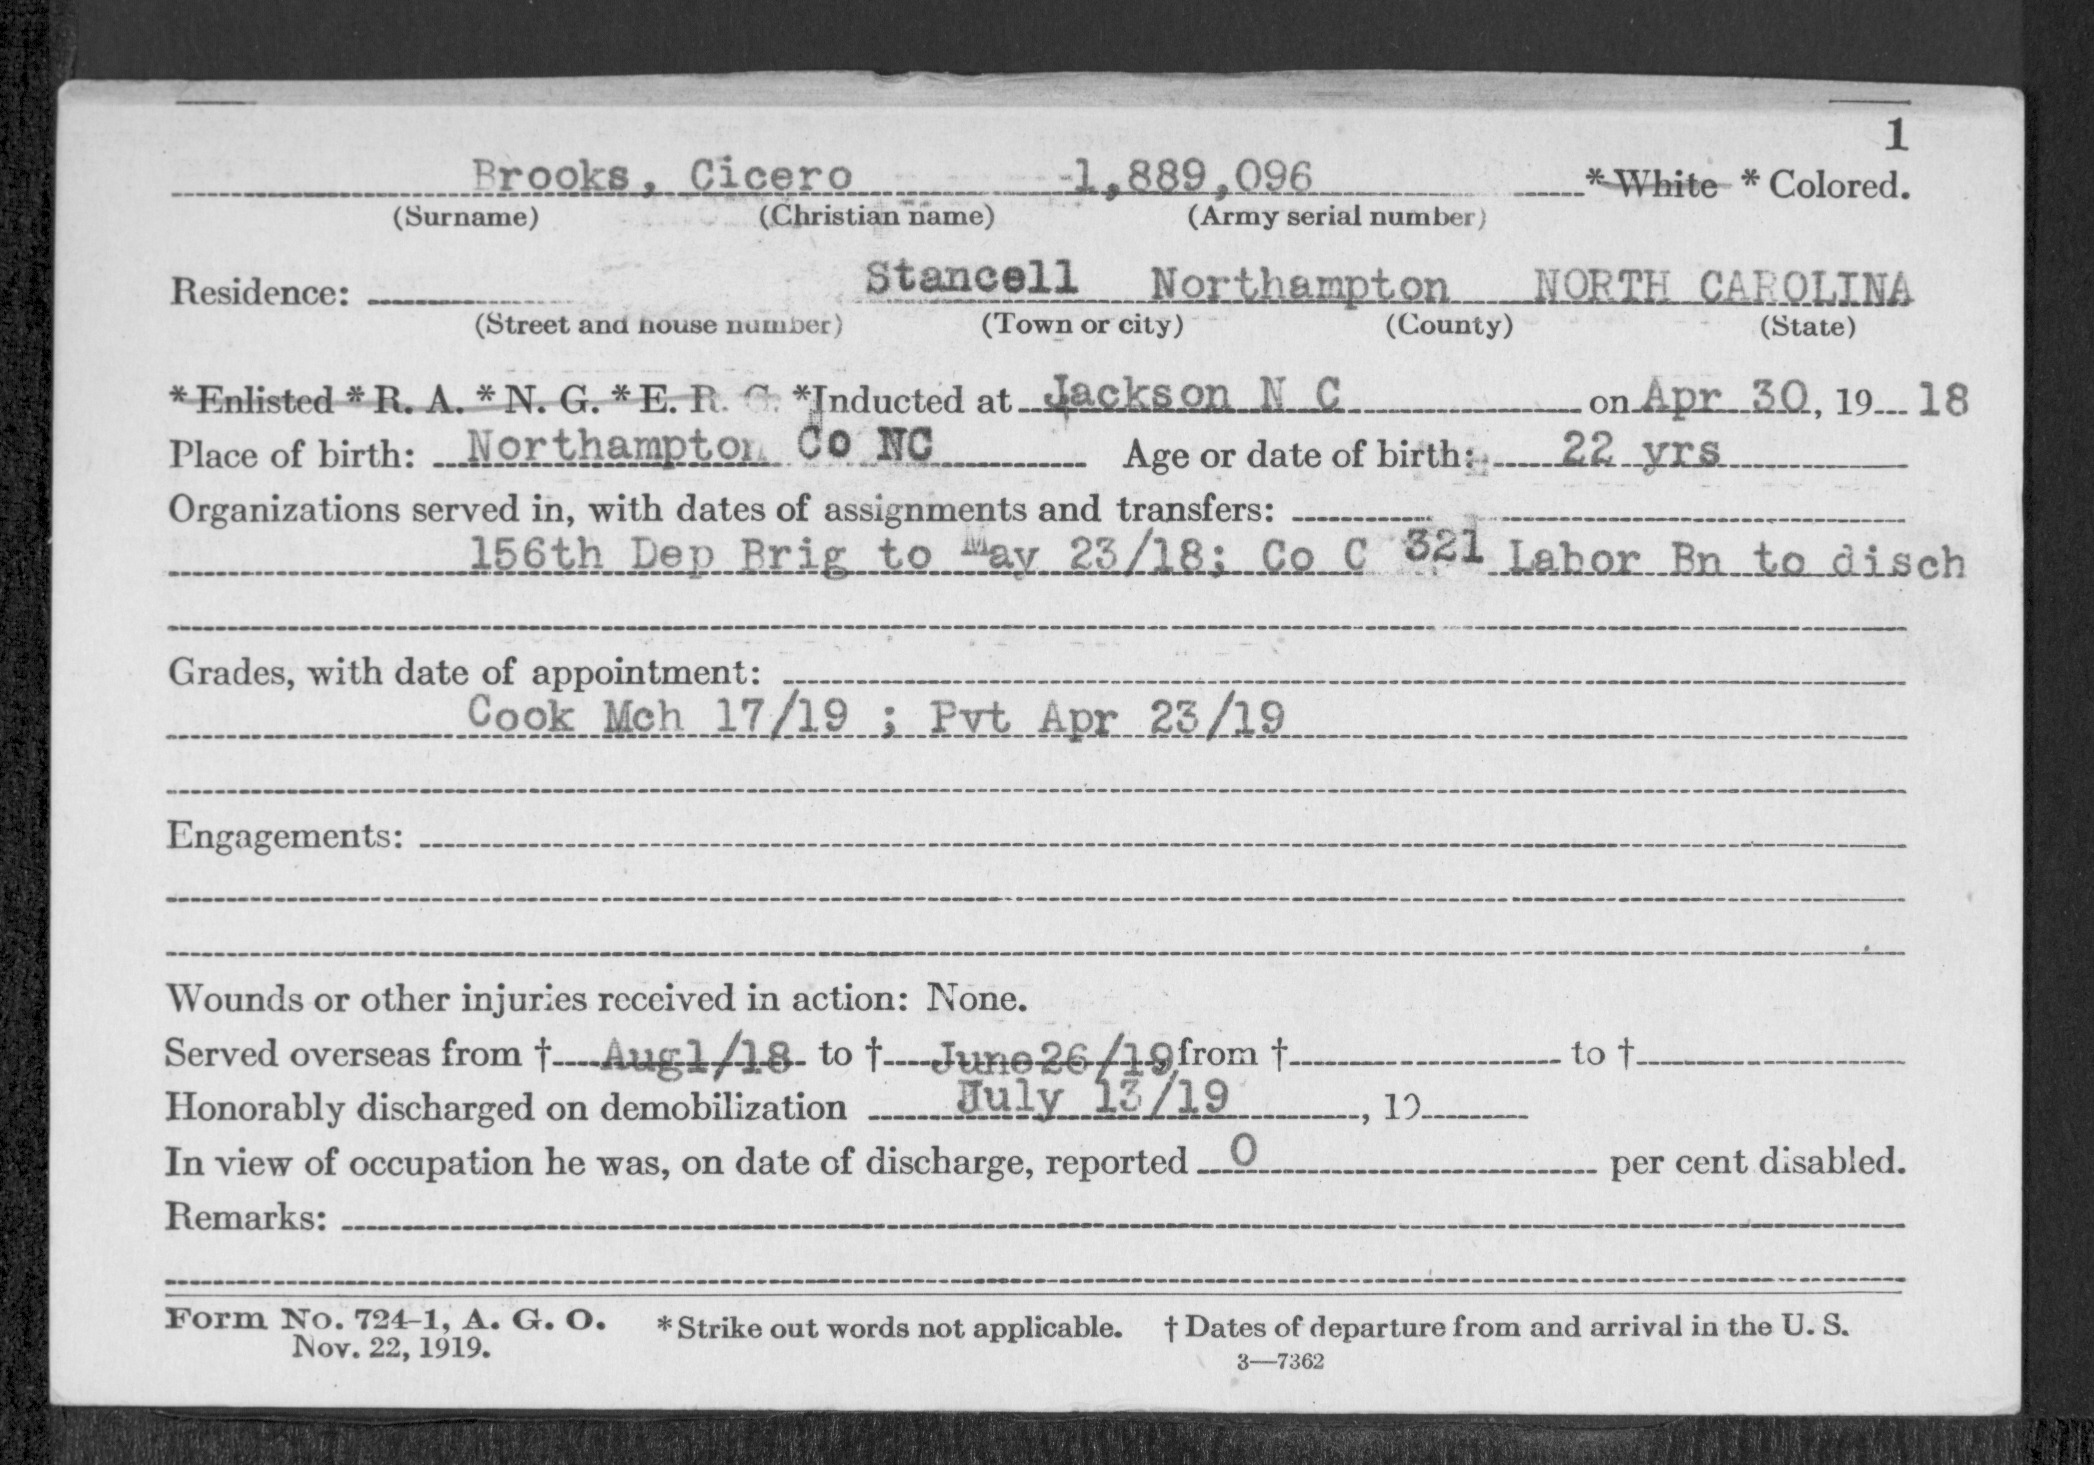 1
Brooks, Cicero 1,889,096 *White * Colored.
(Surname) (Christian name) (Army serial number)
Residence: Stancell Northampton NORTH CAROLINA
(Street and house number) (Town or city) (County) (State)
*Enlisted *R. A. *N. G. *E. R. C. *Inducted at Jackson N C on Apr 30, 19 18
Place of birth: Northampton Co NC Age or date of birth: 22 yrs
Organizations served in, with dates of assignments and transfers:
156th Dep Brig to May 23/18; Co C 321 Labor Bn to disch
Grades, with date of appointment:
Cook Mch 17/19 ; Pvt Apr 23/19
Engagements:
Wounds or other injuries received in action: None.
Served overseas from † Aug 1/18 to † June 26/19, from † to †
Honorably discharged on demobilization July 13/19, 19
In view of occupation he was, on date of discharge, reported 0 per cent disabled.
Remarks:
Form No. 724-1, A. G. O. *Strike out words not applicable. † Dates of departure from and arrival in the U. S.
Nov. 22, 1919. 3—7362